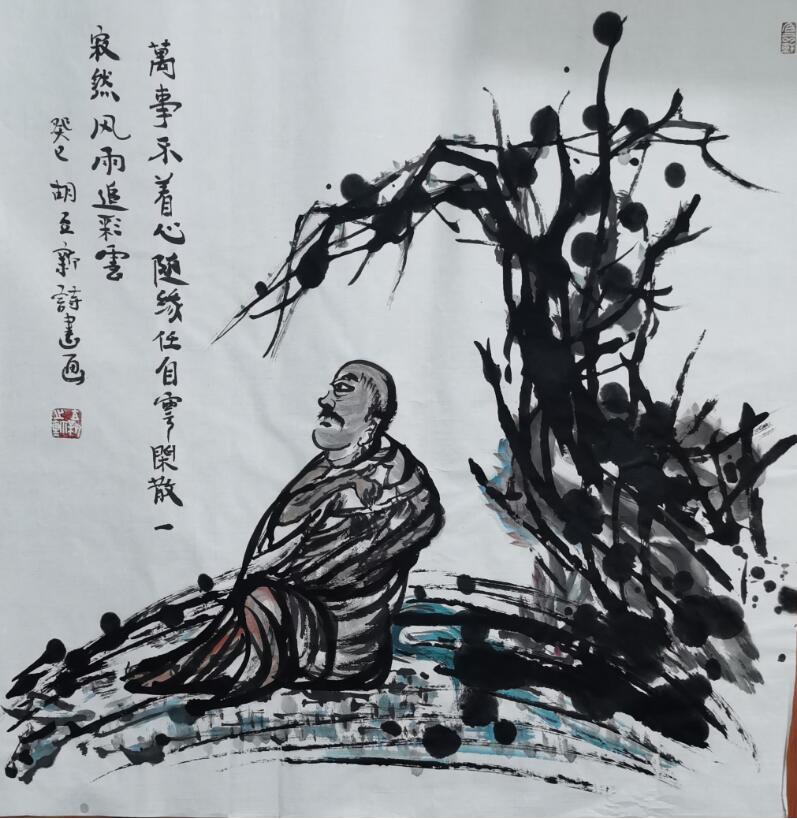 萬事不着心随缘任自閑散一
寂然风雨追彩雲
癸巳胡亚新詩書画